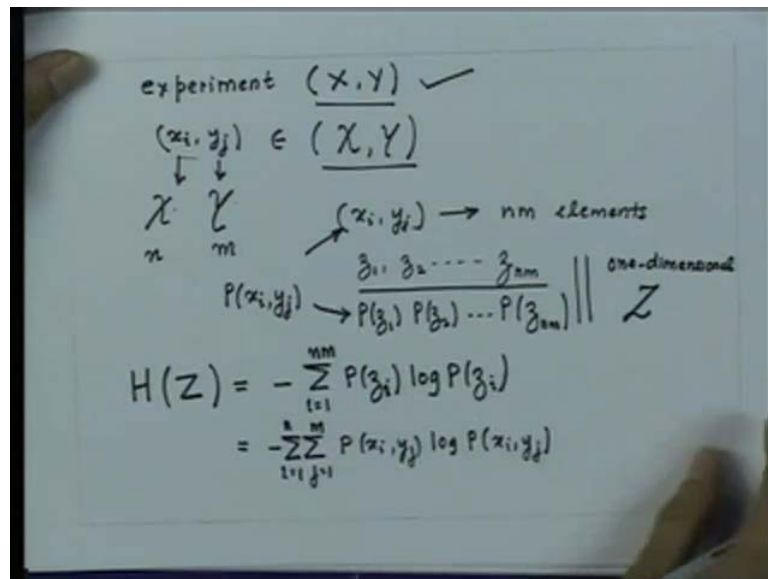 experiment (X, Y) ✓
(xᵢ, yⱼ) ∈ (X, Y)
X Y
n m
(xᵢ, yⱼ) → nm elements
P(xᵢ, yⱼ)
z₁, z₂ ---- zₙₘ
P(z₁) P(z₂) ... P(zₙₘ)
one-dimensional
Z
H(Z) = - ∑ᵢ₌₁ⁿᵐ P(zᵢ) log P(zᵢ)
= - ∑ᵢ₌₁ⁿ ∑ⱼ₌₁ᵐ P(xᵢ, yⱼ) log P(xᵢ, yⱼ)